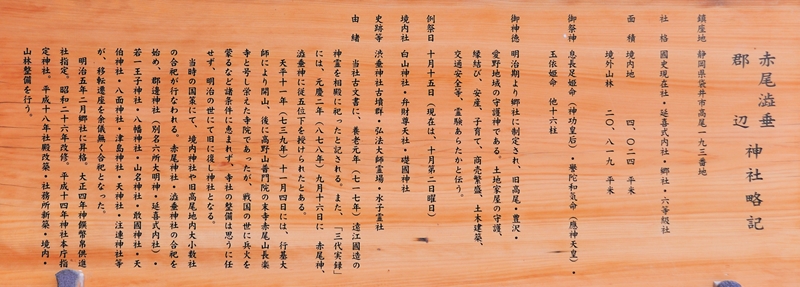 赤尾澁垂
郡辺神社略記
鎮座地 静岡県袋井市高尾一九三番地
社格 國史現在社・延喜式内社・郷社・六等級社
面積 境内地 四、〇二四 平米
境外山林 二〇、八一九 平米
御祭神 息長足姫命(神功皇后)・誉陀和気命(應神天皇)・
玉依姫命 他十六社
御神徳 明治期より郷社に制定され、旧高尾・豊沢・
愛野地域の守護神である。土地家屋の守護、
縁結び、安産、子育て、商売繁盛、土木建築、
交通安全等、霊験あらたかと伝う。
例祭日 十月十五日(現在は、十月第二日曜日)
境内社 白山神社・弁財尊天社・礎國神社
史跡等 渋垂神社古墳群・弘法大師霊場・水子霊社
由緒 当社古文書に、養老元年(七一七年)遠江國造の
神霊を相殿に祀ったと記される。また、「三代実録」
には、元慶二年(八七八年)九月十六日に 赤尾神、
澁垂神に従五位下を授けられたとある。
天平十一年(七三九年)十一月四日には、行基大
師により開山、後に高野山普門院の末寺赤尾山長楽
寺と号し栄えた寺院であったが、戦国の世に兵火を
蒙るなど諸条件に恵まれず、寺社の整備は思うに任
せず、明治の世にて旧に復し神社となる。
当時の国策にて、境内神社や旧高尾地内大小数社
の合祀が行なわれる。赤尾神社・澁垂神社の合祀を
始め、郡邊神社(別名六所大明神・延喜式内社)・
若一王子神社・八幡神社・山名神社・散國神社・天
伯神社・八面神社・津島神社・天神社・注連神社等
が、移転遷座を余儀無く合祀となった。
明治五年二月郷社に昇格。大正四年神饌幣帛供進
社指定。昭和二十六年改修。平成十四年神社本庁指
定神社。平成十八年社殿改築・社務所新築・境内・
山林整備を行う。